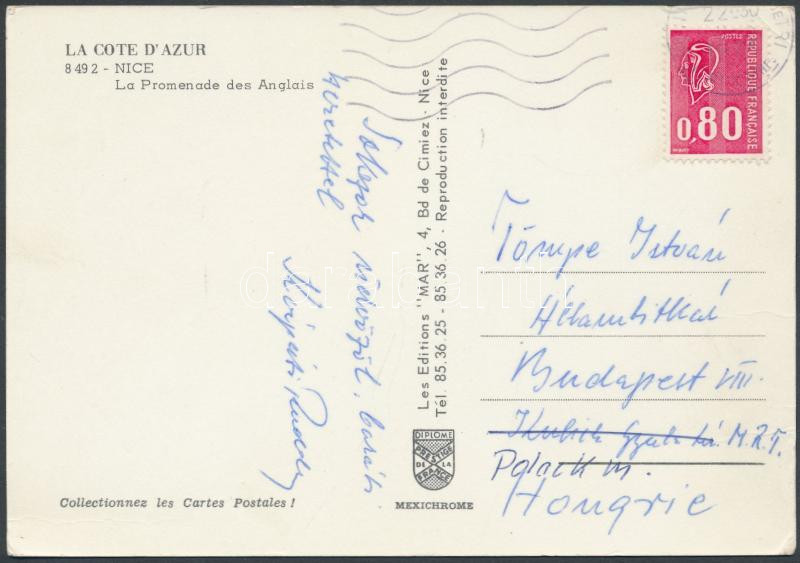 LA COTE D'AZUR
8492 - NICE
La Promenade des Anglais
Sokszor üdvözöl, baráti
szeretettel
Kárpáti Rudolf
Les Editions "MAR", 4, Bd de Cimiez - Nice
Tél. 85.36.25 - 85.36.26 - Reproduction interdite
POSTES
REPUBLIQUE FRANÇAISE
0,80
Tömpe István
Államtitkár
Budapest VIII.
Gyula M.R.T.
Polack m.
Hongrie
DIPLOME
PRESTIGE
DE LA
FRANCE
MEXICHROME
Collectionnez les Cartes Postales !
darabanth